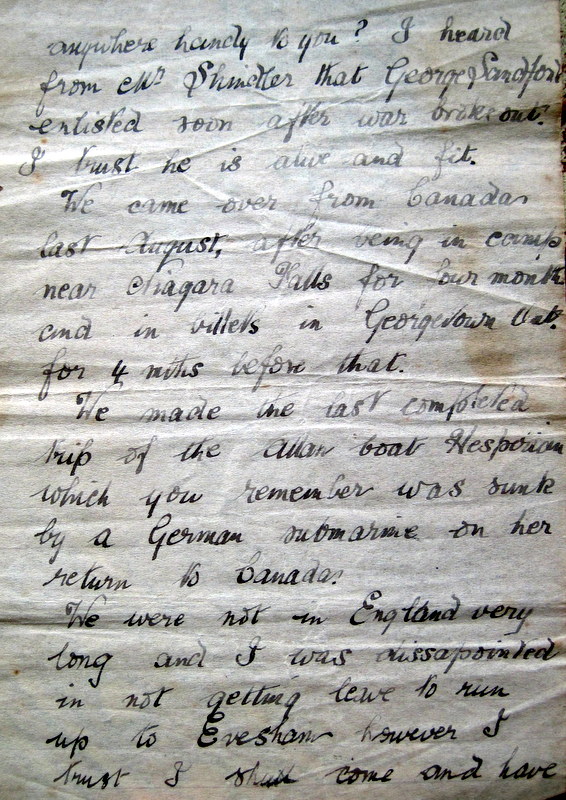 anywhere handy to you? I heard
from Mr Shindler that George Sandford
enlisted soon after war broke out.
I trust he is alive and fit.
We came over from Canada
last August, after being in camp
near Niagara Falls for four month
and in billets in Georgetown Ont.
for 4 mths before that.
We made the last completed
trip of the Allan boat Hesperian
which you remember was sunk
by a German submarine on her
return to Canada.
We were not in England very
long and I was dissapointed
in not getting leave to run
up to Evesham however I
trust I shall come and have